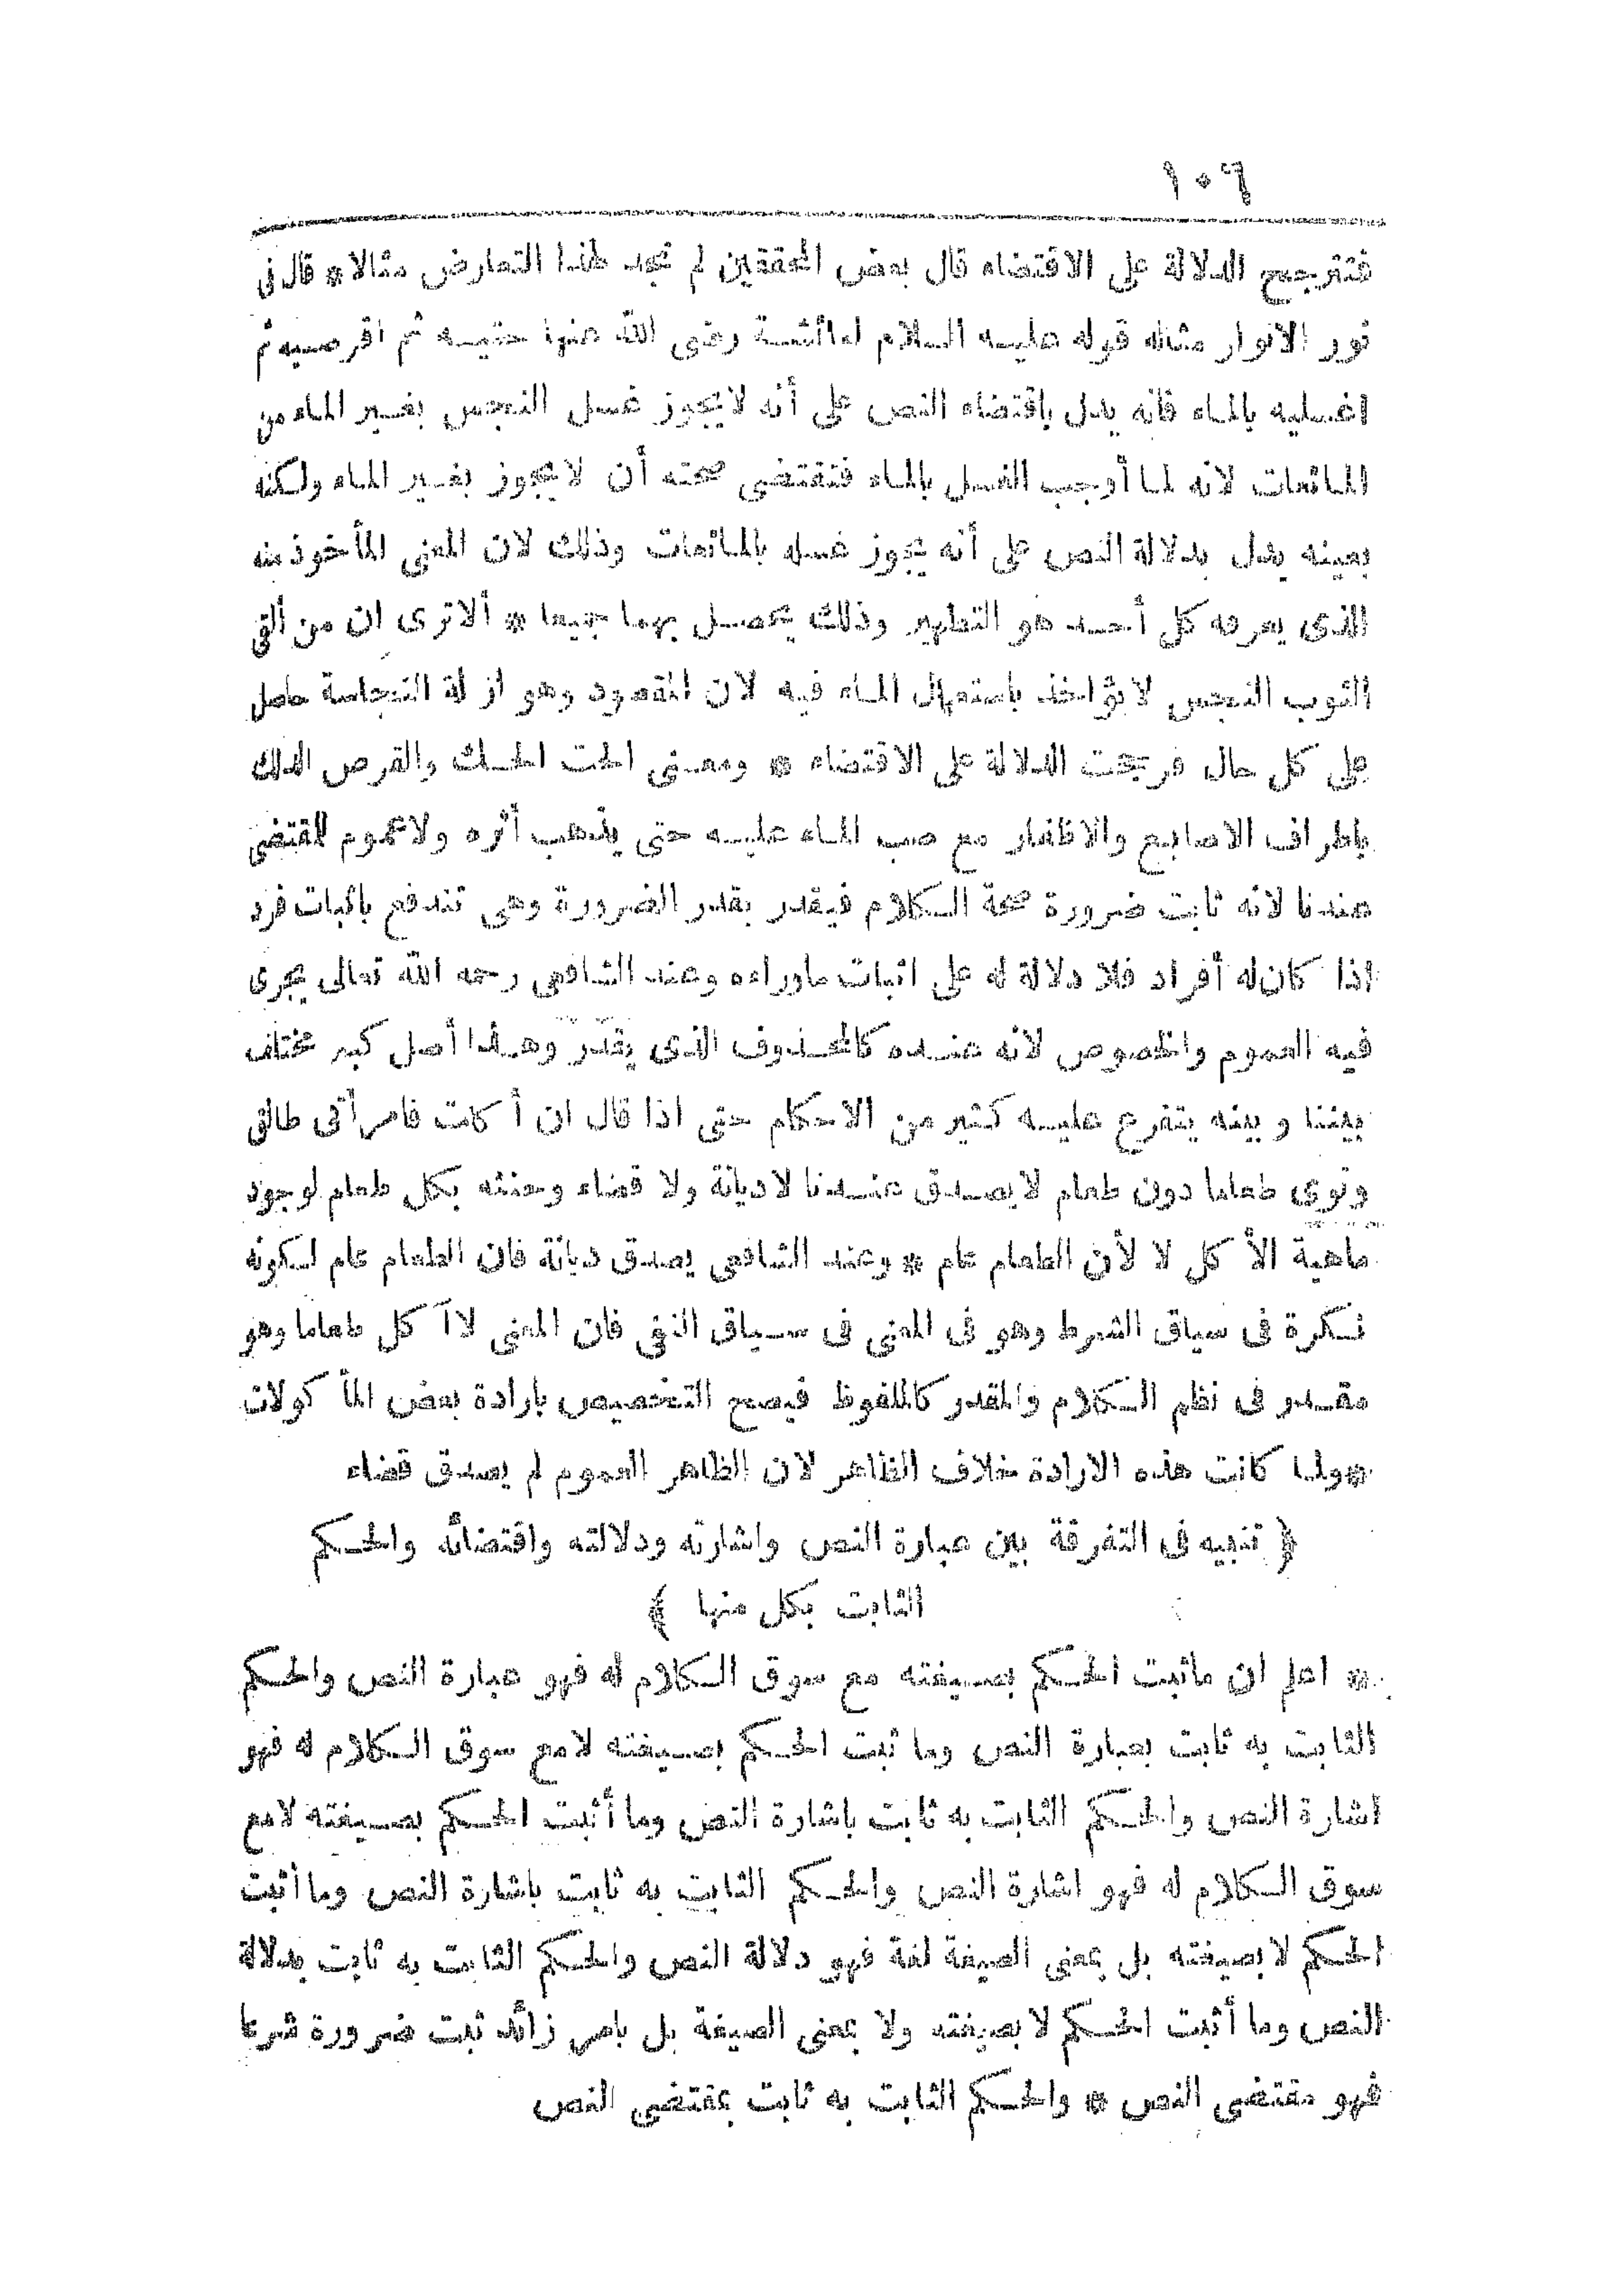 ١٠٦
فتترجح الدلالة على الاقتضاء قال بعض المحققين لم نجد لهذا التعارض مثالا * قال فى
نور الانوار مثاله قوله عليه السلام لعائشة رضى الله عنها حتيه ثم اقرصيه ثم
اغسليه بالماء فانه يدل باقتضاء النص على أنه لا يجوز غسل النجس بغير الماء من
المائعات لانه لما أوجب الغسل بالماء فتقتضى صحته أن لا يجوز بغير الماء ولكنه
بعينه يدل بدلالة النص على أنه يجوز غسله بالمائعات وذلك لان المعنى المأخوذ منه
الذى يعرفه كل أحد هو التطهير وذلك يحصل بهما جميعا * ألا ترى ان من ألقى
الثوب النجس لا يؤاخذ باستعمال الماء فيه لان المقصود وهو ازلة النجاسة حاصل
على كل حال فرجحت الدلالة على الاقتضاء * ومعنى الحت الحك والقرص الدلك
باطراف الاصابع والاظفار مع صب الماء عليه حتى يذهب أثره ولا عموم للمقتضى
عندنا لانه ثابت ضرورة صحة الكلام فيقدر بقدر الضرورة وهى تندفع باثبات فرد
اذا كان له أفراد فلا دلالة له على اثبات ماوراءه وعند الشافعى رحمه الله تعالى يجرى
فيه العموم والخصوص لانه عنده كالمحذوف الذى يقدّر وهذا أصل كبير مختلف
بيننا وبينه يتفرع عليه كثير من الاحكام حتى اذا قال ان أكلت فامرأتى طالق
ونوى طعاما دون طعام لا يصدق عندنا لا ديانة ولا قضاء وحنثه بكل طعام لوجود
ماهية الأكل لا لأن الطعام عام * وعند الشافعى يصدق ديانة فان الطعام عام لكونه
نكرة فى سياق الشرط وهو فى المعنى فى سياق النفى فان المعنى لا آكل طعاما وهو
مقدر فى نظم الكلام والمقدر كالملفوظ فيصح التخصيص بارادة بعض المأكولات
* ولما كانت هذه الارادة خلاف الظاهر لان الظاهر العموم لم يصدق قضاء
﴿ تنبيه فى التفرقة بين عبارة النص واشارته ودلالته واقتضائه والحكم
الثابت بكل منها ﴾
* اعلم ان ما ثبت الحكم بصيغته مع سوق الكلام له فهو عبارة النص والحكم
الثابت به ثابت بعبارة النص وما ثبت الحكم بصيغته لا مع سوق الكلام له فهو
اشارة النص والحكم الثابت به ثابت باشارة النص وما أثبت الحكم بصيغته لا مع
سوق الكلام له فهو اشارة النص والحكم الثابت به ثابت باشارة النص وما أثبت
الحكم لا بصيغته بل بمعنى الصيغة لغة فهو دلالة النص والحكم الثابت به ثابت بدلالة
النص وما أثبت الحكم لا بصيغته ولا بمعنى الصيغة بل بامر زائد ثبت ضرورة شرعا
فهو مقتضى النص * والحكم الثابت به ثابت بمقتضى النص